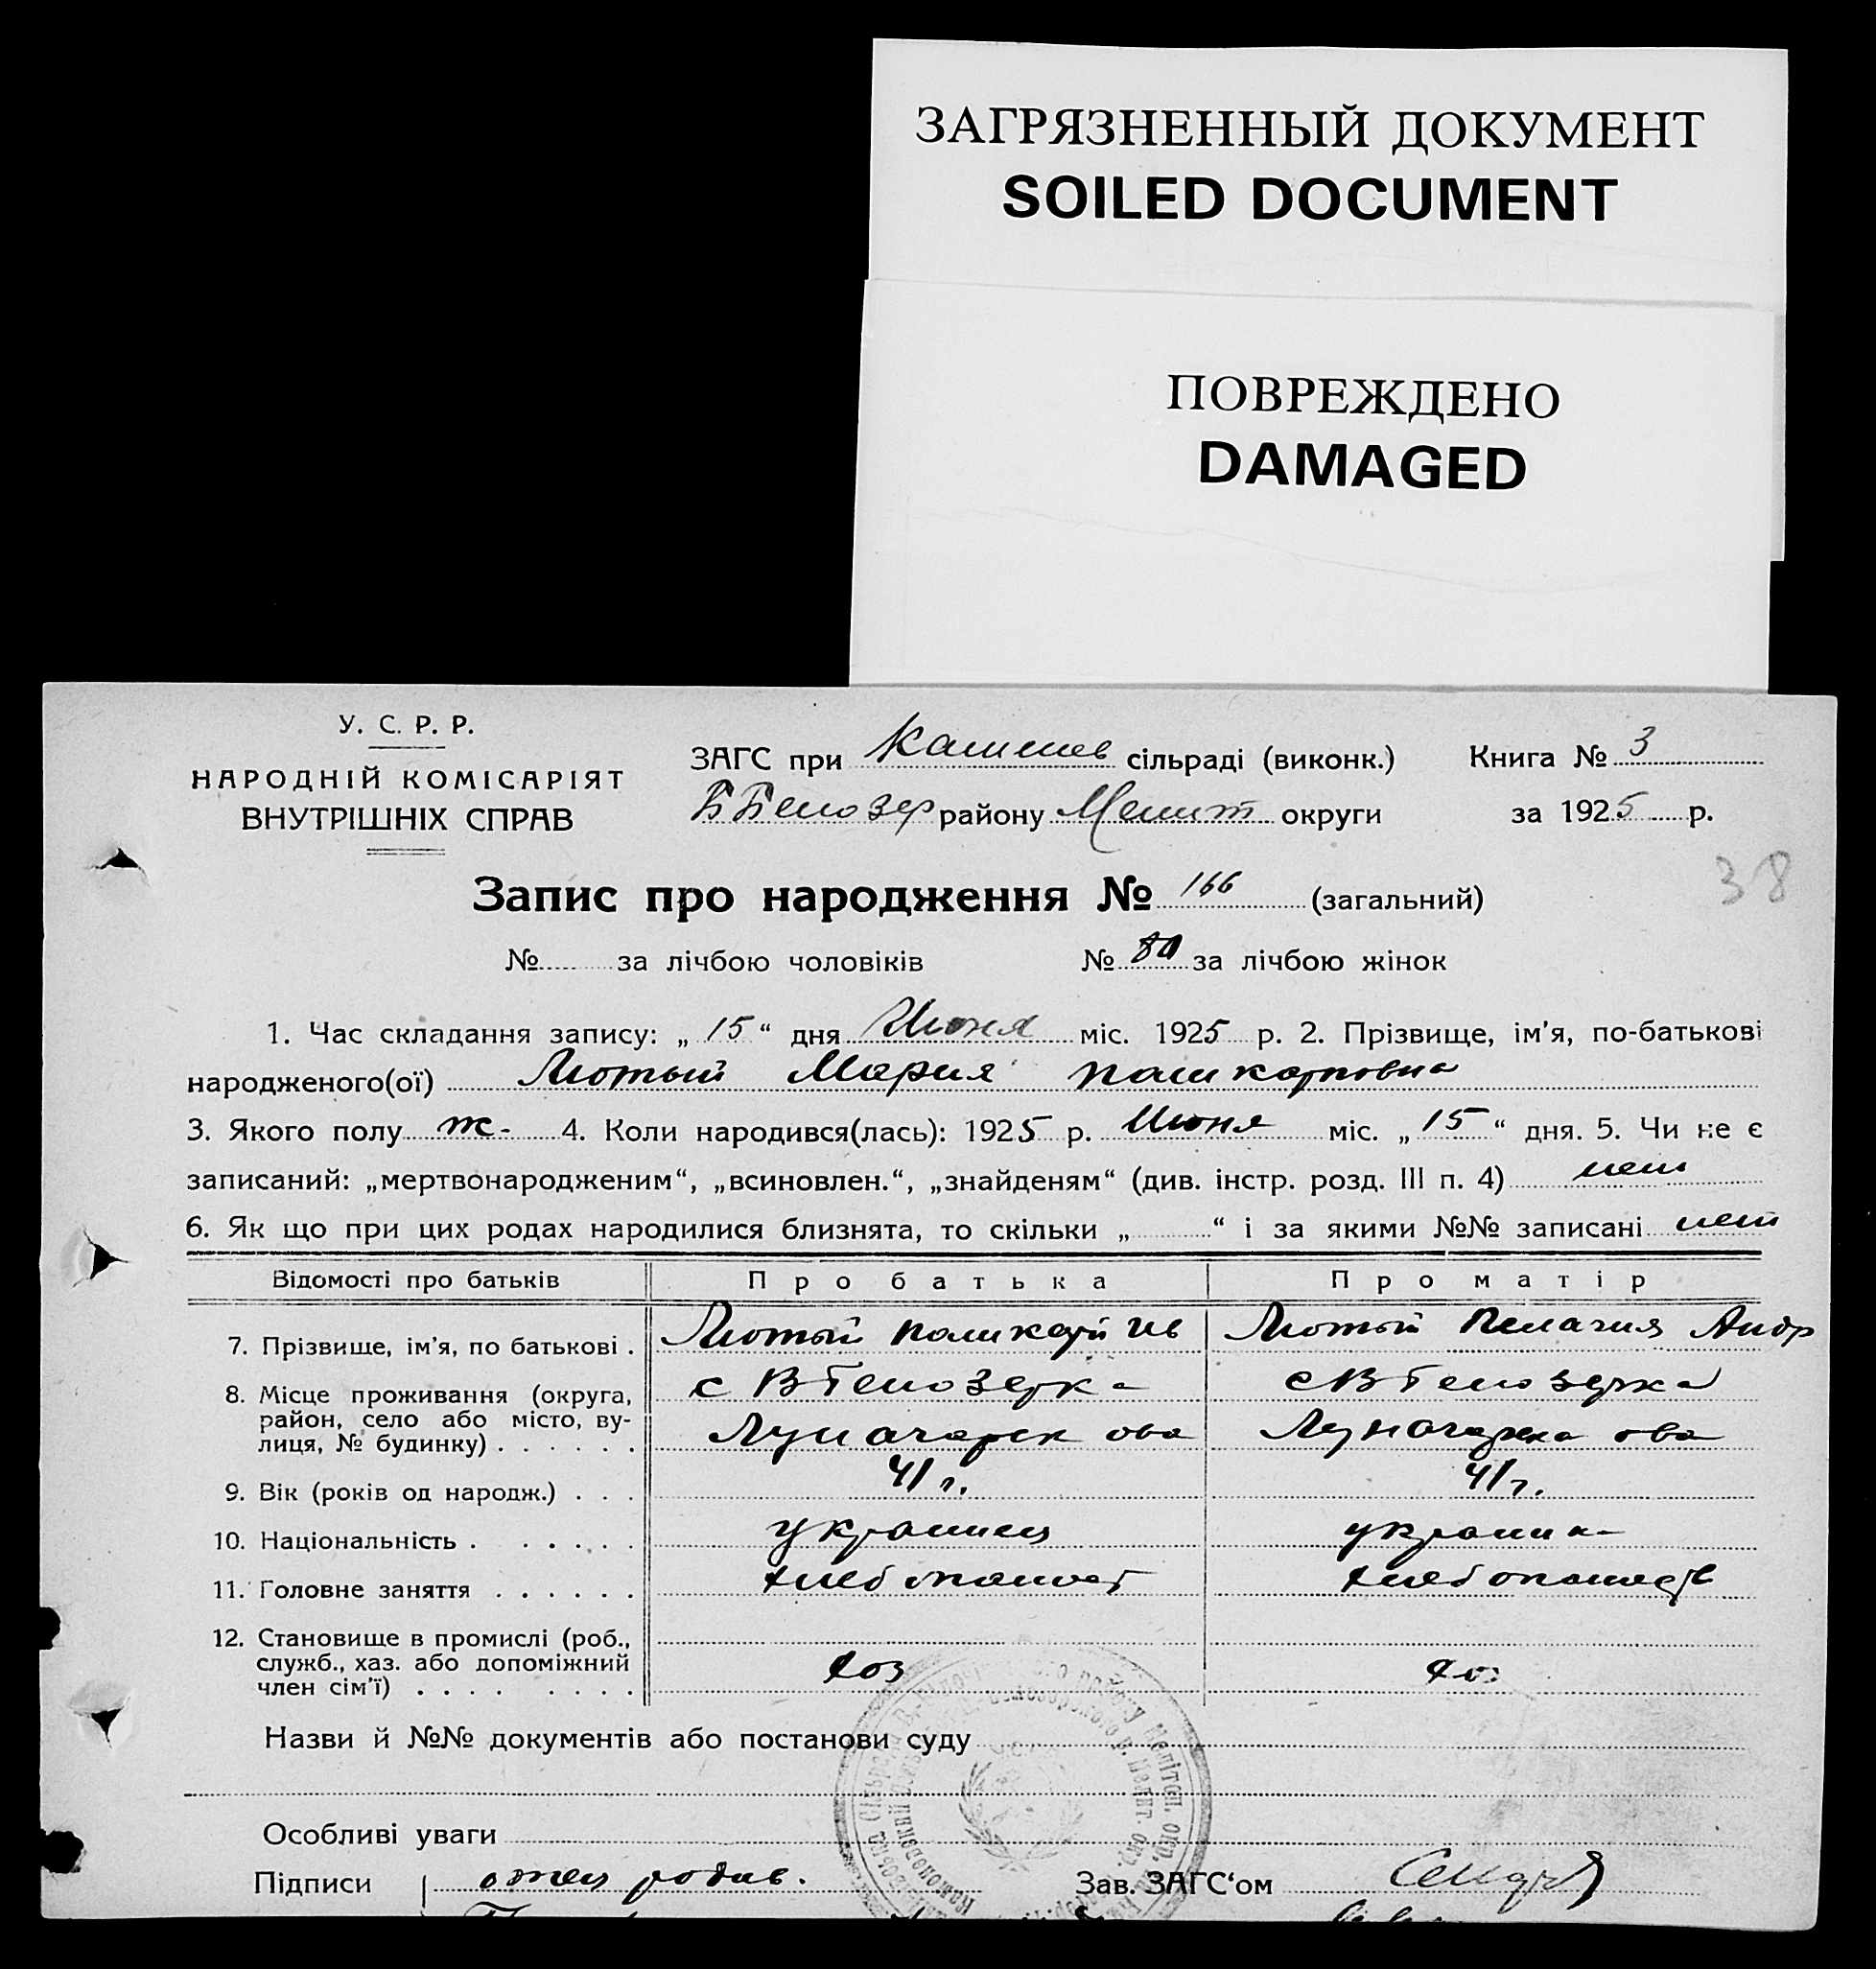 ЗАГРЯЗНЕННЫЙ ДОКУМЕНТ
SOILED DOCUMENT
ПОВРЕЖДЕНО
DAMAGED
У. С. Р. Р.
НАРОДНІЙ КОМІСАРІЯТ
ВНУТРІШНІХ СПРАВ
ЗАГС при сільраді (виконк.)
Книга № 3
ББелозер району Мелит округи
за 1925 р.
38
Запис про народження № 166 (загальний)
№ за лічбою чоловіків № 80 за лічбою жінок
1. Час складання запису: „ 15 “ дня Июня міс. 1925 р. 2. Прізвище, ім'я, по-батькові
народженого(ої) Лютый Мария Поликарповна
3. Якого полу ж. 4. Коли народився(лась): 1925 р. Июня міс. „ 15 “ дня. 5. Чи не є
записаний: „мертвонародженим“, „всиновлен.“, „знайденям“ (див. інстр. розд. III п. 4) нет
6. Як що при цих родах народилися близнята, то скільки „ “ і за якими №№ записані нет
Відомості про батьків Про батька Про матір
7. Прізвище, ім'я, по батькові . Лютый Поликарп Ив Лютый Пелагия Андр
8. Місце проживання (округа, с ВБелозерка с ВБелозерка
район, село або місто, ву-
лиця, № будинку) . . . . . .
9. Вік (років од народж.) . . . 41 г. 41 г.
10. Національність . . . . . . украинец украин
11. Головне заняття . . . . . . хлебопашест хлебопашеств
12. Становище в промислі (роб.,
служб., хаз. або допоміжний хоз хоз
член сім'ї) . . . . . . . .
Назви й №№ документів або постанови суду
Особливі уваги
Підписи отец Зав. ЗАГС‘ом